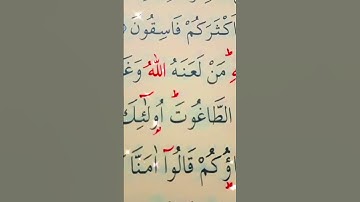 اَكْثَرَكُمْ فَاسِقُونَ
مَنْ لَعَنَهُ اللّٰهُ وَغَ
الطَّاغُوتَ اُولٰٓئِكَ
ؤُكُمْ قَالُٓوا اٰمَنَّا